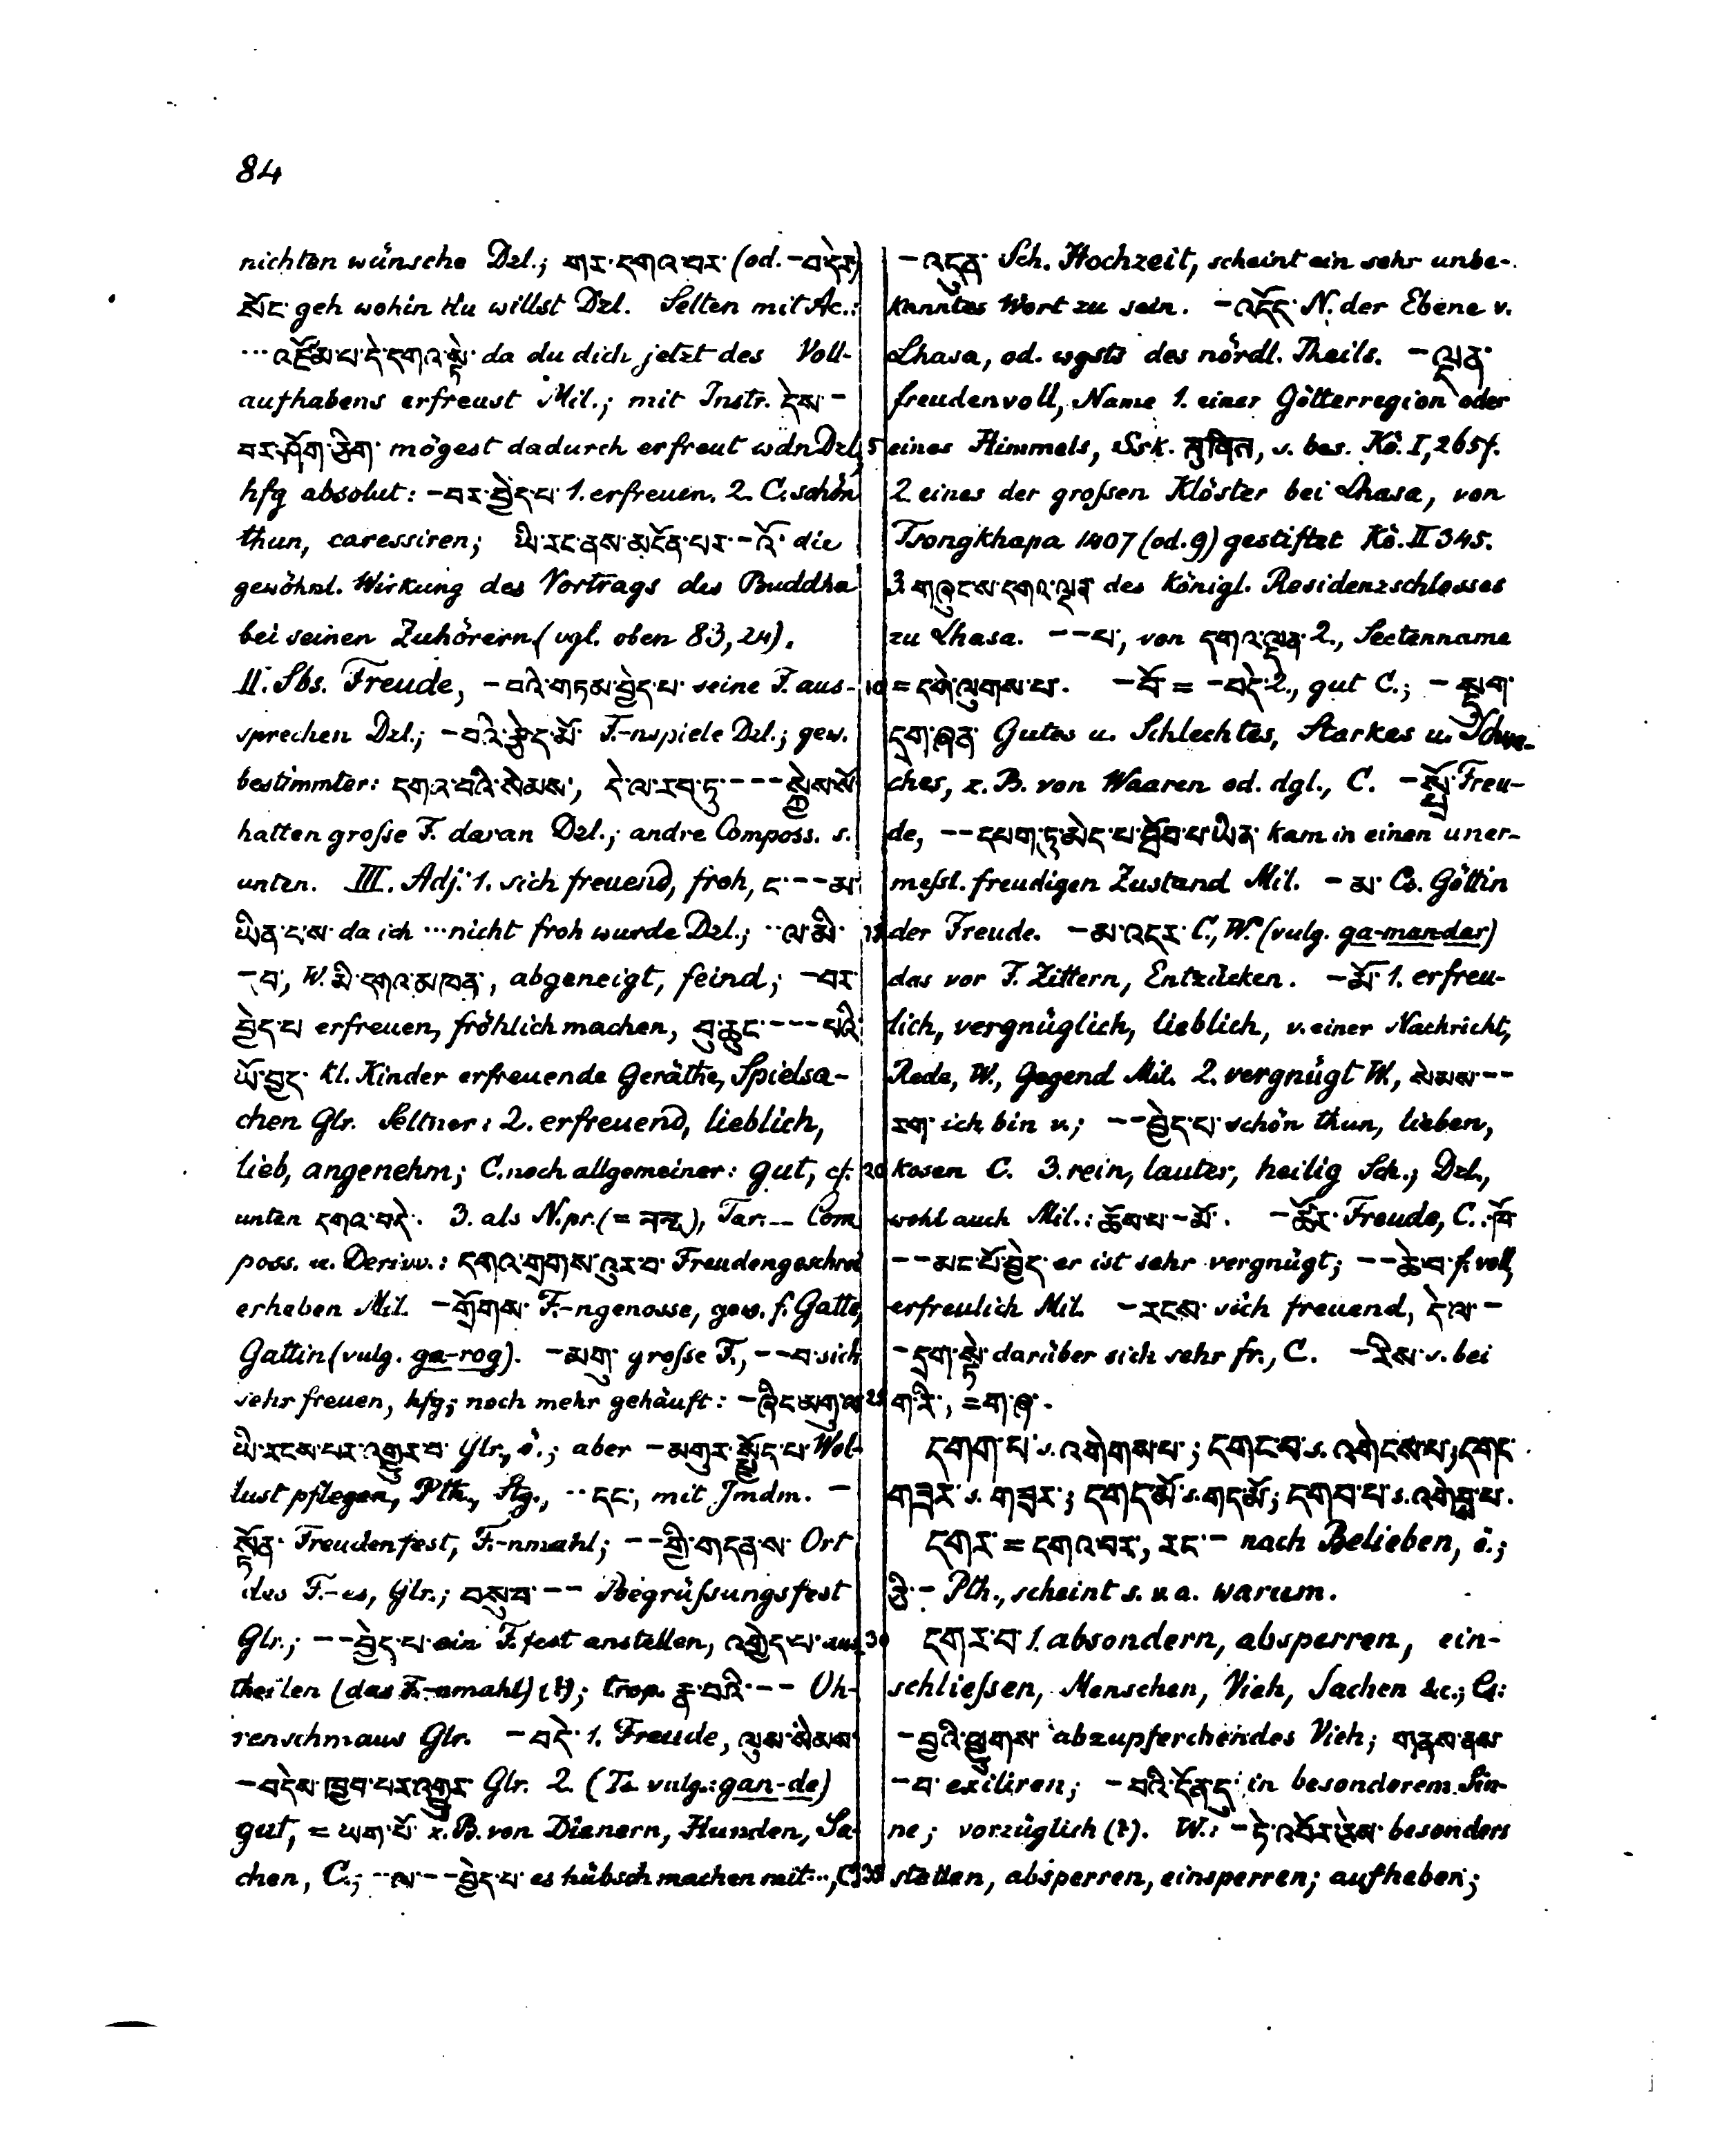 84
nichten wünsche Dzl.; གར་དགའ་བར་ (od. -བདེར)
སོང་ geh wohin du willst Dzl. Selten mit Ac.:
··· འཛོམ་པ་དེ་དགའ་སྟེ་ da du dich jetzt des Voll-
aufhabens erfreust Mil.; mit Instr. དེས་ -
བར་ཤོག་ཅིག་ mögest dadurch erfreut wdn Dzl,
hfg absolut: -བར་བྱེད་པ་ 1. erfreuen. 2. C. schön
thun, caressiren; ཡི་རང་ནས་མངོན་པར་ -འོ་ die
gewöhnl. Wirkung des Vortrags des Buddha
bei seinen Zuhörern (vgl. oben 83, 24).
II. Sbs. Freude, -བའི་གཏམ་བྱེད་པ་ seine F. aus-
sprechen Dzl.; -བའི་རྩེད་མོ་ F.-nspiele Dzl.; gew.
bestimmter: དགའ་བའི་སེམས་, དེ་ལ་རབ་ཏུ་ --- སྐྱེས་སོ
hatten große F. daran Dzl.; andre Composs. s.
unten. III. Adj. 1. sich freuend, froh, ང་ -- མ་
ཡིན་ང་ས་ da ich ··· nicht froh wurde Dzl.; ·· ལ་མི་
-བ་, W. མི་དགའ་མཁན་, abgeneigt, feind; -བར་
བྱེད་པ་ erfreuen, fröhlich machen, བུ་ཆུང་ --- པའི་
ཡོ་བྱད་ kl. Kinder erfreuende Geräthe, Spielsa-
chen Glr. Seltner: 2. erfreuend, lieblich,
lieb, angenehm; C. noch allgemeiner: gut, cf.
unten དགའ་བདེ་. 3. als N.pr. (= नन्द), Tar. — Com
poss. u. Derivv.: དགའ་གྲགས་འུར་བ་ Freudengeschrei
erheben Mil. -གྲོགས་ F.-ngenosse, gew. f. Gatte,
Gattin (vulg. ga-rog). -མགུ་ große F., --བ་ sich
sehr freuen, hfg; noch mehr gehäuft: -ཞིང་མགུ་ལ་
ཡི་རངས་པར་འགྱུར་བ་ Glr., ö.; aber -མགུར་སྤྱོད་པ་ Wol-
lust pflegen, Pth., Stg., ·· དང་, mit Jmdm. -
སྟོན་ Freudenfest, F.-nmahl; --གྱི་གདན་ས་ Ort
des F.-es, Glr.; བསུ་བ་ -- Begrüßungsfest
Glr.; --བྱེད་པ་ ein F. fest anstellen, འགྱེད་པ་ aus
theilen (das F.-nmahl) (?); trop. རྣ་བའི་ -- Oh-
renschmaus Glr. -བདེ་ 1. Freude, ལུས་སེམས་
-བདེས་ཁྱབ་པར་འགྱུར་ Glr. 2. (Ts. vulg.: gan-de)
gut, = ཡག་པོ་ z.B. von Dienern, Hunden, Sa-
chen, C.; ·· ལ་ --བྱེད་པ་ es hübsch machen mit ···, C.
-འདུན་ Sch. Hochzeit, scheint ein sehr unbe-
kanntes Wort zu sein. -འདོད་ N. der Ebene v.
Lhasa, od. wgsts des nördl. Theils. -ལྡན་
freudenvoll, Name 1. einer Götterregion oder
5 eines Himmels, Ssk. तुषित, s. bes. Kö. I, 265 f.
2. eines der großen Klöster bei Lhasa, von
Tsongkhapa 1407 (od. 9) gestiftet Kö. II 345.
3. གཞུང་ས་དགའ་ལྡན་ des königl. Residenzschlosses
zu Lhasa. --པ་, von དགའ་ལྡན་ 2., Sectenname
10 = དགེ་ལུགས་པ་. -བོ་ = -བདེ་ 2., gut C.; -སྡུག་
དྲག་ཞན་ Gutes u. Schlechtes, Starkes u. Schwa-
ches, z.B. von Waaren od. dgl., C. -སྤྲོ་ Freu-
de, --དཔག་ཏུ་མེད་པ་ཐོབ་པ་ཡིན་ kam in einen uner-
meßl. freudigen Zustand Mil. -མ་ Cs. Göttin
15 der Freude. -མ་འདར་ C., W. (vulg. ga-man-dar)
das vor F. Zittern, Entzücken. -མོ་ 1. erfreu-
lich, vergnüglich, lieblich, v. einer Nachricht,
Rede, W., Gegend Mil. 2. vergnügt W., སེམས་ --
རག་ ich bin v.; --བྱེད་པ་ schön thun, lieben,
20 kosen C. 3. rein, lauter, heilig Sch.; Dzl.,
wohl auch Mil.: ཆོས་པ་ -མོ་. -ཚོར་ Freude, C.: ཁོ་
--མང་པོ་བྱེད་ er ist sehr vergnügt; --ཆེ་བ་ f. voll,
erfreulich Mil. -རངས་ sich freuend, དེ་ལ་ -
-དྲག་སྟེ་ darüber sich sehr fr., C. -རིས་ s. bei
25 ག་རི་, = ག་ཞ་.
དགག་པ་ s. འགེགས་པ་; དགང་བ་ s. འགེངས་པ་; དགང་
གཟར་ s. གཟར་; དགད་མོ་ s. གད་མོ་; དགབ་པ་ s. འགེབ་པ་.
དགར་ = དགའ་བར་, རང་ - nach Belieben, ö.;
ཅི་ - Pth., scheint s. v. a. warum.
30 དགར་བ་ 1. absondern, absperren, ein-
schließen, Menschen, Vieh, Sachen &c.; Cs:
-བྱའི་ཕྱུགས་ abzupferchendes Vieh; གནས་ནས་
-བ་ exiliren; -བའི་དོན་དུ་ in besonderem Sin-
ne; vorzüglich (?). W.: -ཏེ་འབོར་ཅེས་ besonders
35 stellen, absperren, einsperren; aufheben;